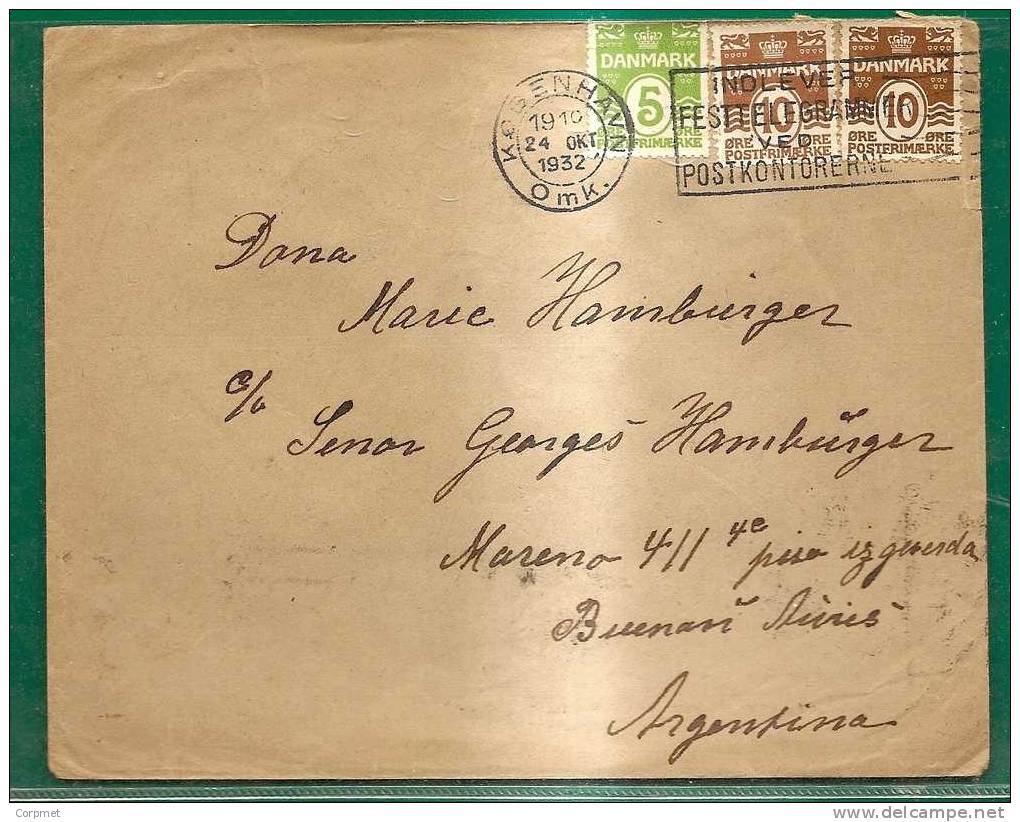 DANMARK DANMARK DANMARK
5 10 10
ØRE ØRE ØRE ØRE
POSTFRIMÆRKE POSTFRIMÆRKE POSTFRIMÆRKE
KØBENHAVN
19 10
24 OKT
1932
Omk.
INDLEVER
FESTTELEGRAMMER
VED
POSTKONTORERNE
Dona
Marie Hamburger
c/o
Senor Georges Hambŭrger
Mareno 411 4e piso izquerda
Argentina
Corpmet
www.delcampe.net